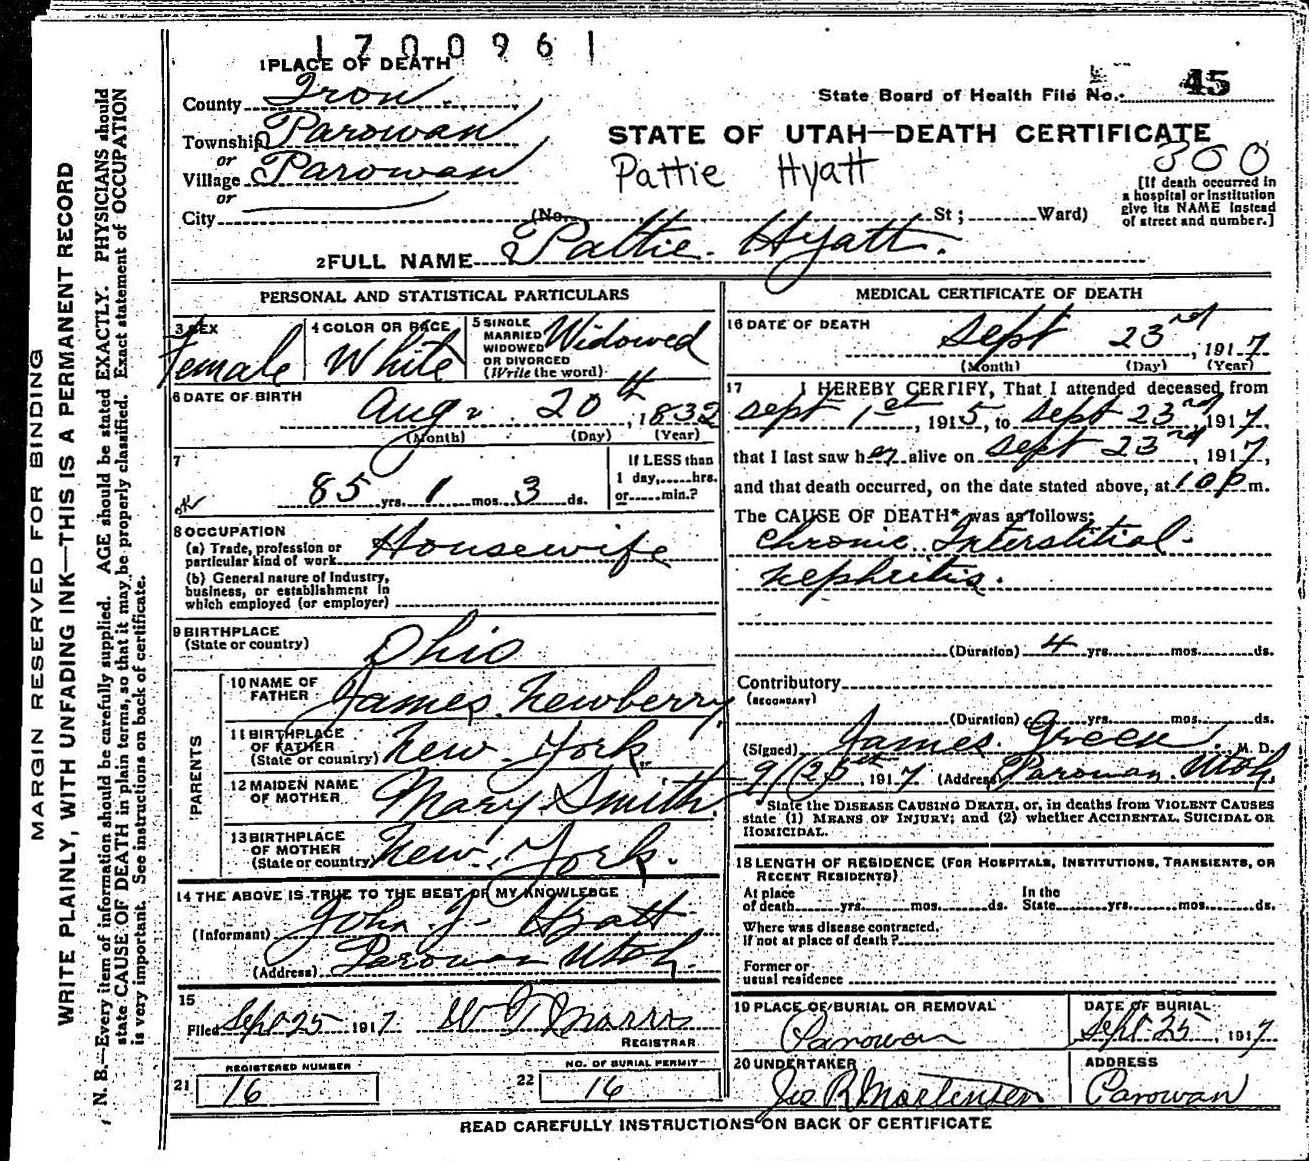 1700961
1 PLACE OF DEATH
County Iron
Township Parowan
or
Village Parowan
or
City (No. St; Ward)
State Board of Health File No. 45
STATE OF UTAH—DEATH CERTIFICATE
Pattie Hyatt
300
[If death occurred in
a hospital or institution
give its NAME instead
of street and number.]
2 FULL NAME Pattie Hyatt.
PERSONAL AND STATISTICAL PARTICULARS
3 SEX
Female
4 COLOR OR RACE
White
5 SINGLE
MARRIED
WIDOWED
OR DIVORCED
(Write the word)
Widowed
6 DATE OF BIRTH
Aug 20th, 1832
(Month) (Day) (Year)
7
85 yrs. 1 mos. 3 ds.
If LESS than
1 day, hrs.
or min.?
8 OCCUPATION
(a) Trade, profession or
particular kind of work Housewife
(b) General nature of Industry,
business, or establishment in
which employed (or employer)
9 BIRTHPLACE
(State or country) Ohio
PARENTS
10 NAME OF
FATHER James Newberry
11 BIRTHPLACE
OF FATHER
(State or country) New York
12 MAIDEN NAME
OF MOTHER Mary Smith
13 BIRTHPLACE
OF MOTHER
(State or country) New York.
14 THE ABOVE IS TRUE TO THE BEST OF MY KNOWLEDGE
(Informant) John J. Hyatt
(Address) Parowan Utah.
15
Filed Sept 25 1917
REGISTRAR
REGISTERED NUMBER
21 16
NO. OF BURIAL PERMIT
22 16
MEDICAL CERTIFICATE OF DEATH
16 DATE OF DEATH
Sept 23rd, 1917
(Month) (Day) (Year)
17 I HEREBY CERTIFY, That I attended deceased from
Sept 1st, 1915, to Sept 23rd, 1917,
that I last saw her alive on Sept 23rd, 1917,
and that death occurred, on the date stated above, at 10 p m.
The CAUSE OF DEATH* was as follows:
Chronic Interstitial
nephritis.
(Duration) 4 yrs. mos. ds.
Contributory
(SECONDARY)
(Duration) yrs. mos. ds.
(Signed) James Green M. D.
9/25th, 1917 (Address) Parowan Utah
State the DISEASE CAUSING DEATH, or, in deaths from VIOLENT CAUSES
state (1) MEANS OF INJURY; and (2) whether ACCIDENTAL, SUICIDAL OR
HOMICIDAL.
18 LENGTH OF RESIDENCE (FOR HOSPITALS, INSTITUTIONS, TRANSIENTS, OR
RECENT RESIDENTS)
At place
of death yrs. mos. ds.
In the
State yrs. mos. ds.
Where was disease contracted,
if not at place of death?
Former or
usual residence
19 PLACE OF BURIAL OR REMOVAL
Parowan
DATE OF BURIAL
Sept 25, 1917
20 UNDERTAKER
Jos R Mortensen
ADDRESS
Parowan
READ CAREFULLY INSTRUCTIONS ON BACK OF CERTIFICATE
MARGIN RESERVED FOR BINDING
WRITE PLAINLY, WITH UNFADING INK—THIS IS A PERMANENT RECORD
N. B.—Every item of information should be carefully supplied. AGE should be stated EXACTLY. PHYSICIANS should
state CAUSE OF DEATH in plain terms, so that it may be properly classified. Exact statement of OCCUPATION
is very important. See instructions on back of certificate.